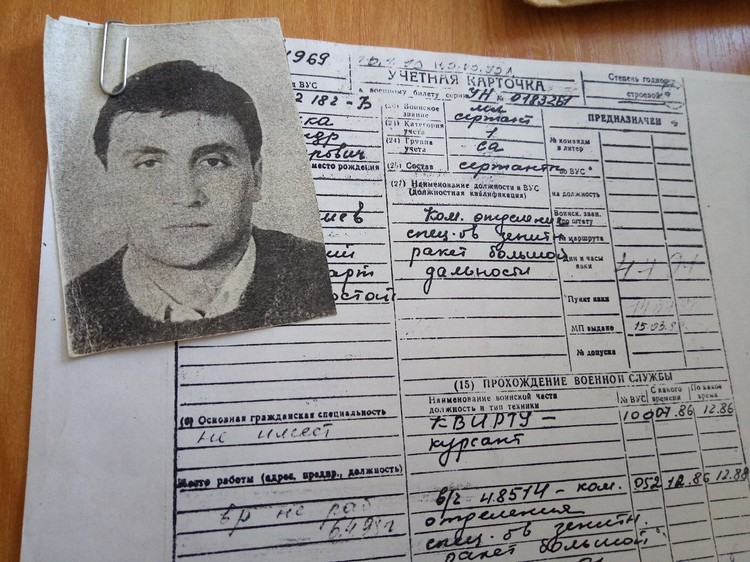 1969
УЧЕТНАЯ КАРТОЧКА
к военному билету серии УН № 0183251
Степень годности
строевой
ВУС
2 182-В
ка
др
рович
место рождения
(20) Воинское звание
мл. сержант
(21) Категория учета
1
(24) Группа учета
СА
(26) Состав
сержанты
ПРЕДНАЗНАЧЕН
№ команды и литер
по ВУС
(27) Наименование должности и ВУС
(должностная квалификация)
Ком. отделения
спец. об зенитн
ракет большой
дальности
на должность
Воинск. зван. по штату
№ маршрута
Дни и часы явки
Пункт явки
МП выдано
15.03.9
№ допуска
ев
ий
арт
остой
(15) ПРОХОЖДЕНИЕ ВОЕННОЙ СЛУЖБЫ
Наименование воинской части
должность и тип техники
№ ВУС
С какого времени
По какое время
КВИРТУ - 100 07.86 12.86
курсант
в/ч 48514 - ком. 052 12.86 12.88
отделения
спец. об зенитн.
ракет большой
(6) Основная гражданская специальность
не имеет
Место работы (адрес, предпр., должность)
вр не раб